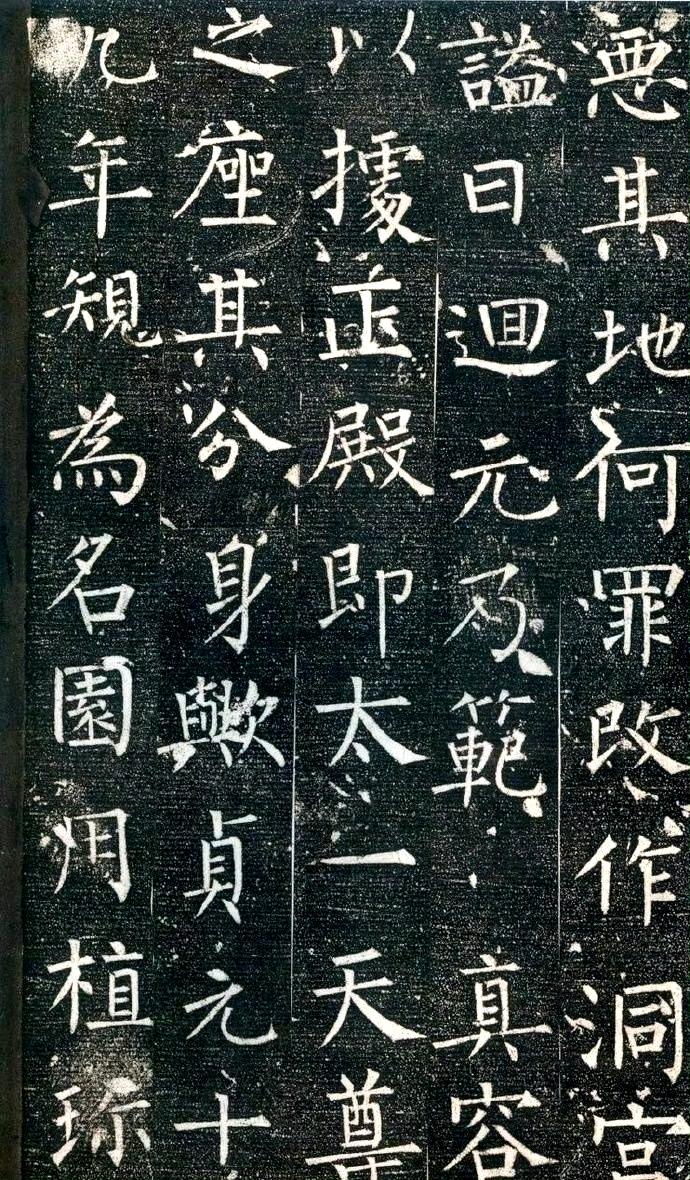 惡其地何罪改作洞宮
謚曰迴元乃範真容
以據正殿即太一天尊
之座其分身歟貞元十
九年䂓為名園用植珎